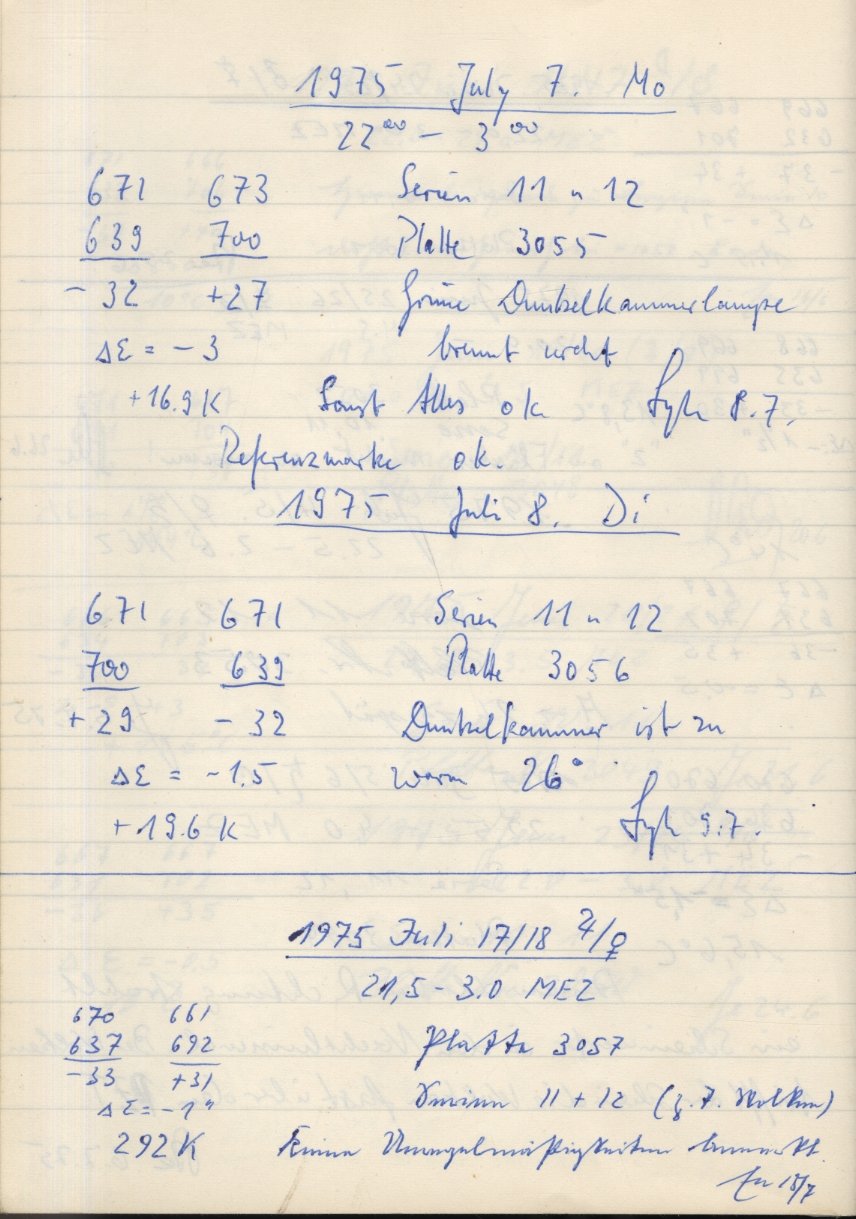 1975 July 7. Mo
22⁰⁰ – 3⁰⁰
671 673 Serien 11 u 12
639 700 Platte 3055
- 32 +27 Grüne Dunkelkammerlampe
ΔE = - 3 brennt nicht
+16.9 K Sonst Alles ok 8.7.
Referenzmarke ok.
1975 Juli 8. Di
671 671 Serien 11 u 12
700 639 Platte 3056
+ 29 - 32 Dunkelkammer ist zu
ΔE = - 1.5 warm 26°
+ 19.6 K 9.7.
1975 Juli 17/18 ♃/♀
21,5 - 3.0 MEZ
670 661
637 692 Platte 3057
-33 +31
ΔE = -1" Serien 11 + 12 (z. T. Wolken)
292 K Keine Unregelmäßigkeiten bemerkt.
18/7